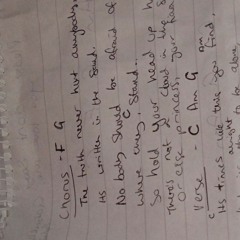 Chorus - F G
The truth never hurt anybody
its written in the sand.
No body should be afraid of
C
where they stand..
So hold your head up h
There's not a cloud in the s
or else princess, your
Verse - C Am G
am
C
Its times like this you find.